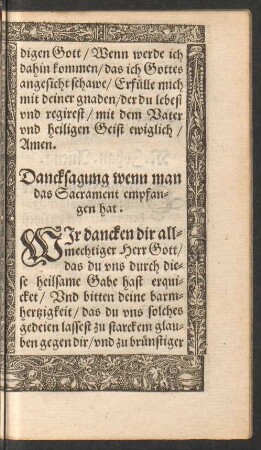 digen Gott / Wenn werde ich
dahin kommen / das ich Gottes
angesicht schawe / Erfülle mich
mit deiner gnaden / der du lebest
vnd regirest / mit dem Vater
vnd heiligen Geist ewiglich /
Amen.
Dancksagung wenn man
das Sacrament empfan-
gen hat.
WIr dancken dir all-
mechtiger Herr Gott /
das du vns durch die-
se heilsame Gabe hast erqui-
cket / Vnd bitten deine barm-
hertzigkeit / das du vns solches
gedeien lassest zu starckem glau-
ben gegen dir / vnd zu brünstiger